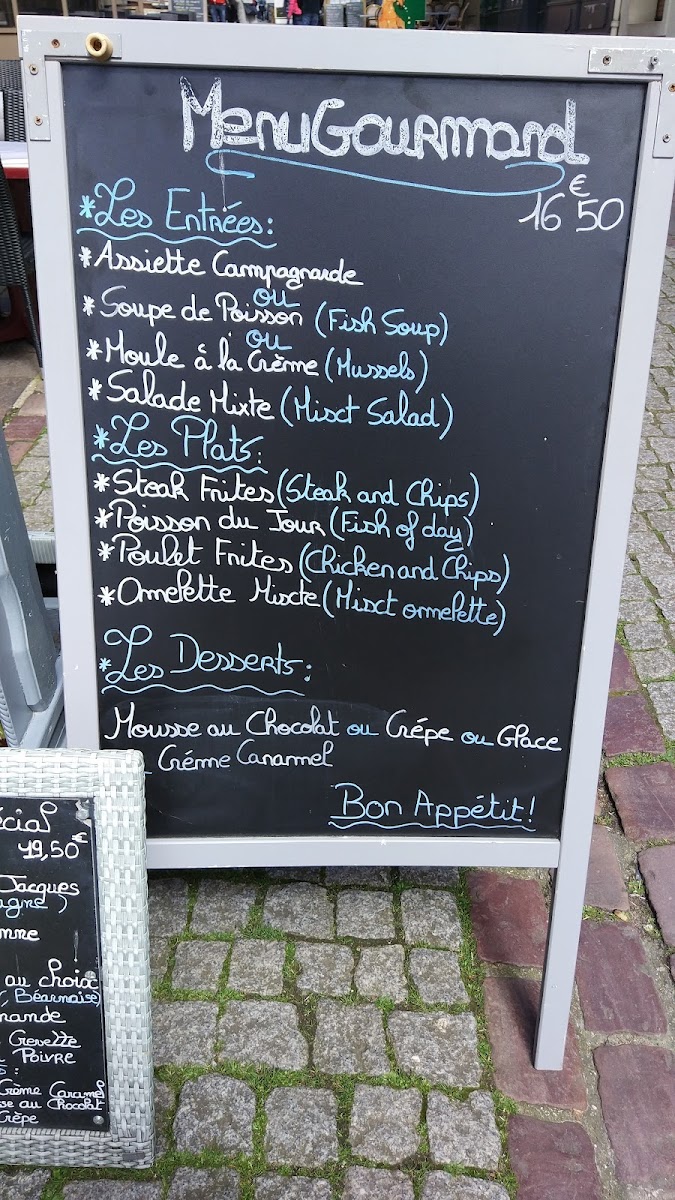 Menu Gourmand
16€50
*Les Entrées:
*Assiette Campagnarde
ou
*Soupe de Poisson (Fish Soup)
ou
*Moule à la Crème (Mussels)
*Salade Mixte (Misct Salad)
*Les Plats:
*Steak Frites (Steak and Chips)
*Poisson du Jour (Fish of day)
*Poulet Frites (Chicken and Chips)
*Omelette Miscte (Misct ommelette)
*Les Desserts:
Mousse au Chocolat ou Crépe ou Glace
Créme Caramel
Bon Appétit!
écial
19,50€
Jacques
agne)
au choix
Béarnaise)
mande
Poivre
Crème Caramel
se au Chocolat
Crêpe